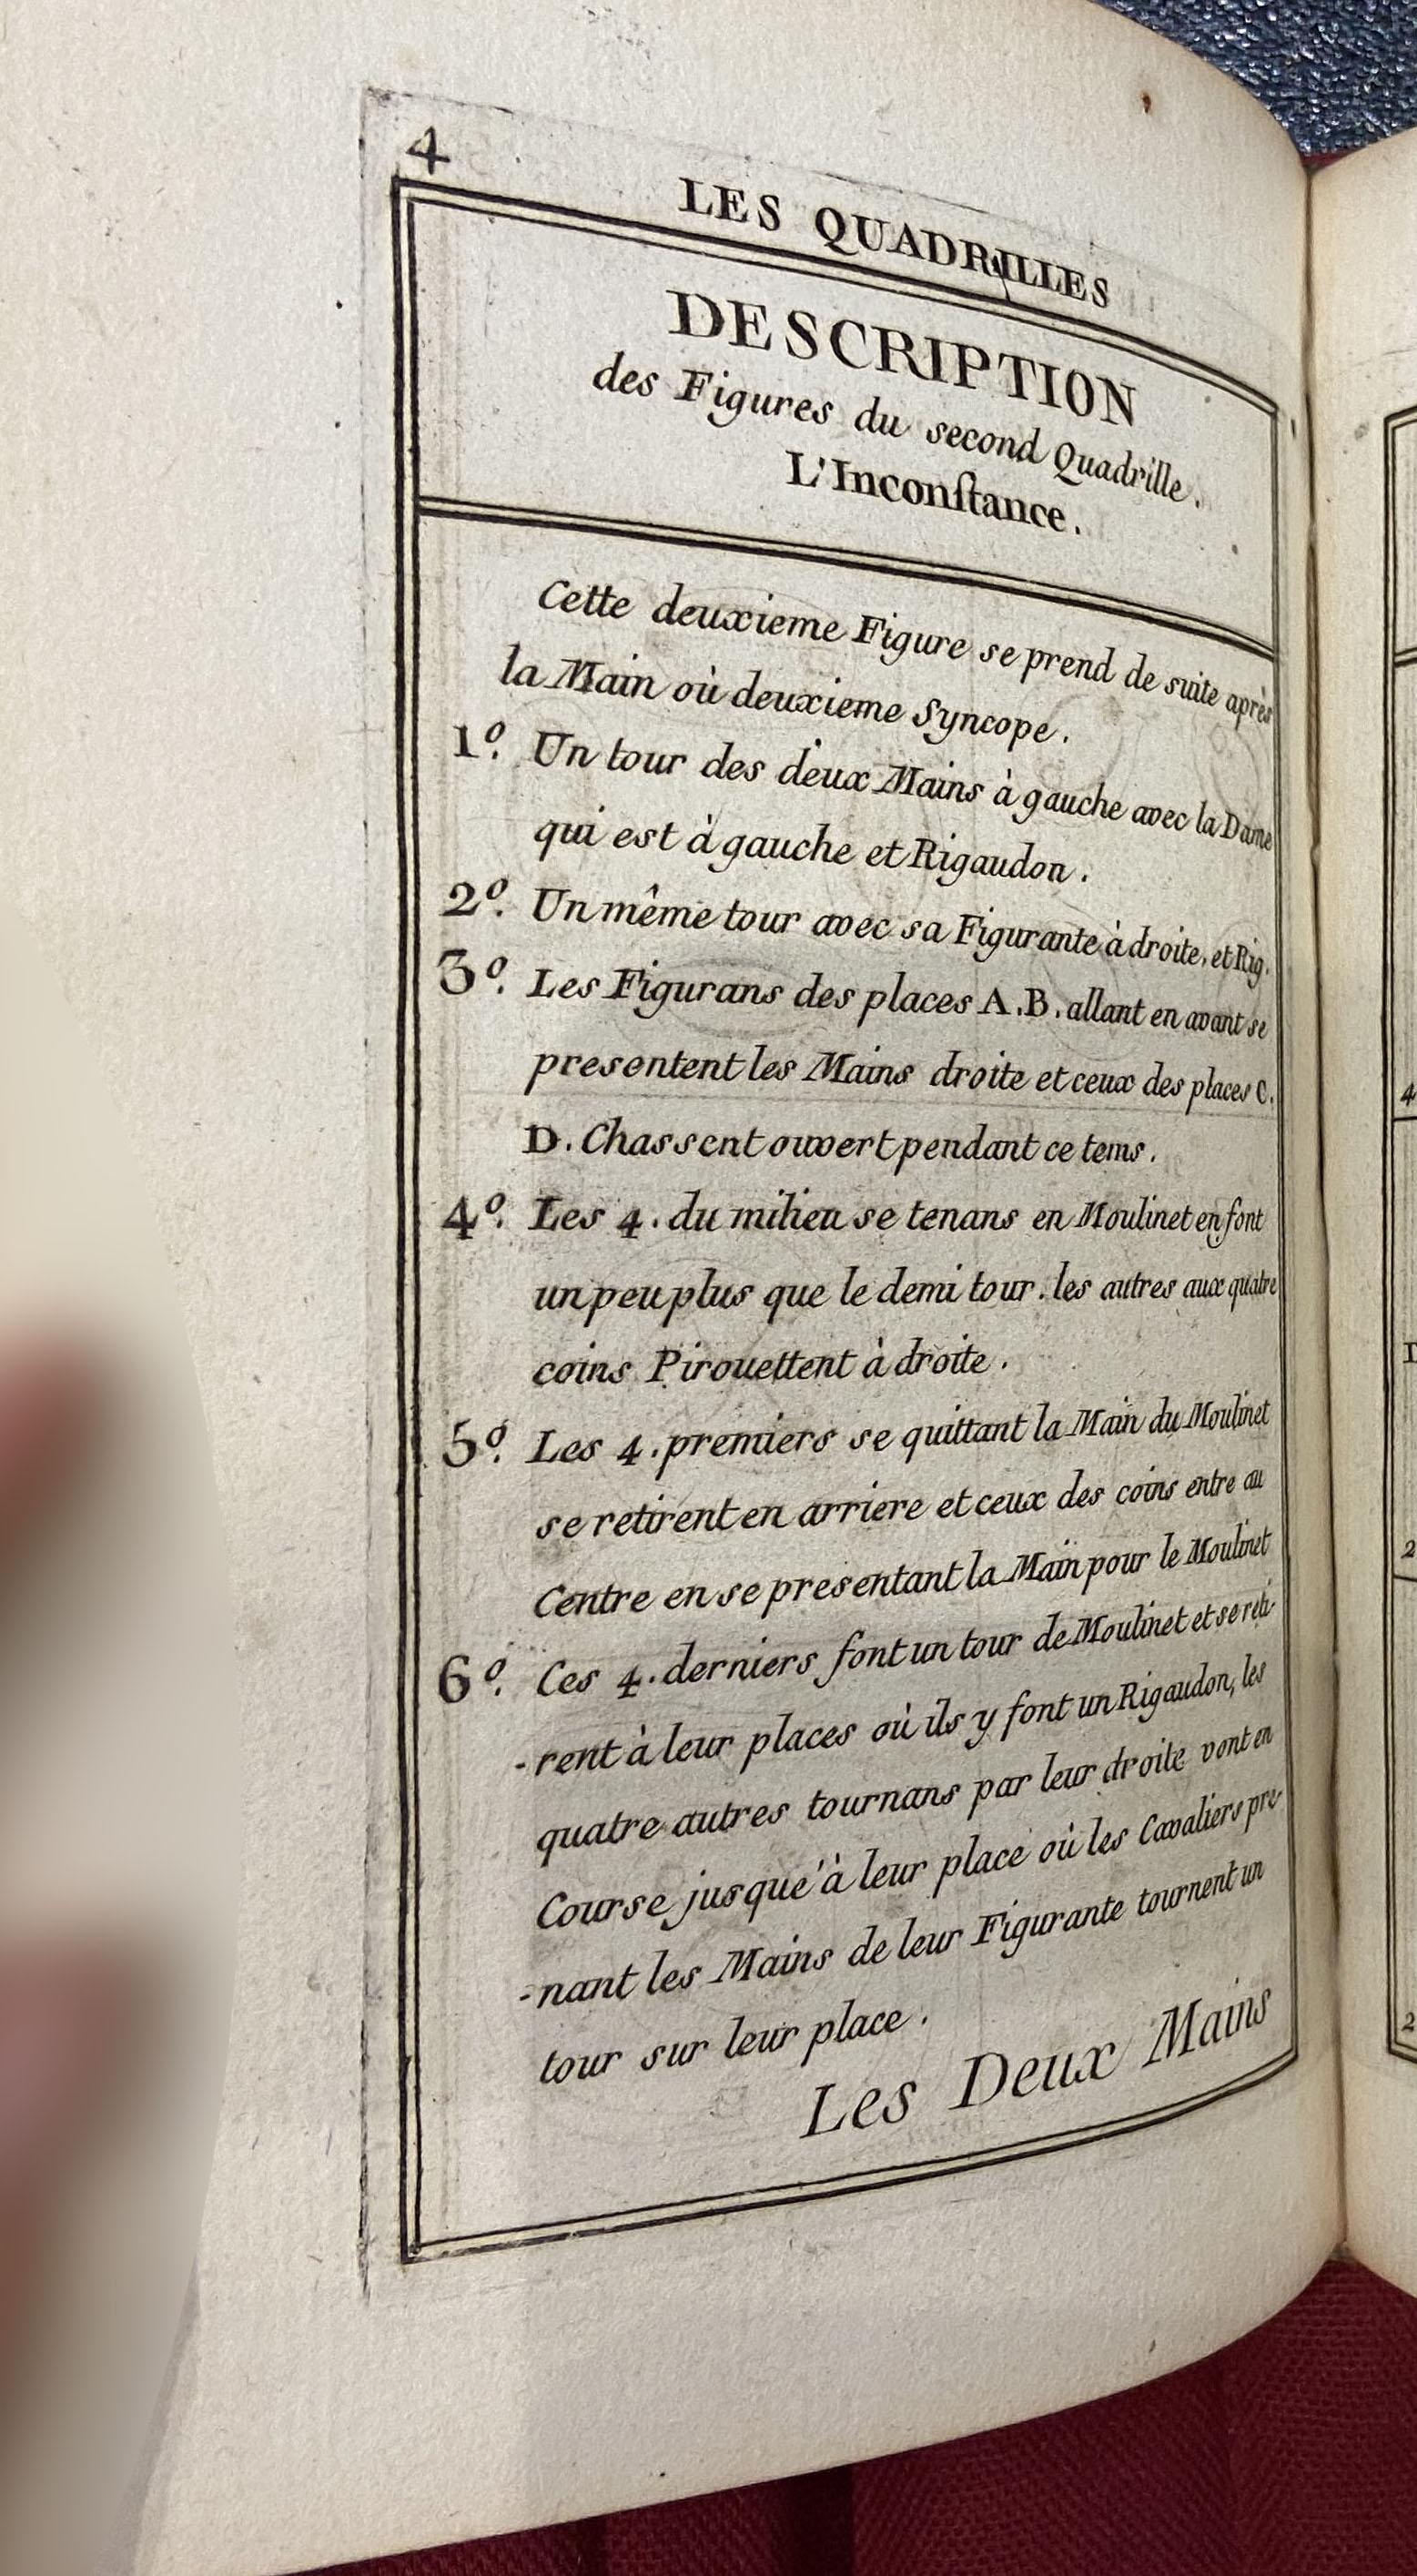 4
LES QUADRILLES
DESCRIPTION
des Figures du second Quadrille.
L'Inconſtance.
Cette deuxieme Figure se prend de suite après
la Main où deuxieme Syncope.
1º. Un tour des deux Mains à gauche avec la Dame
qui est à gauche et Rigaudon.
2º. Un même tour avec sa Figurante à droite, et Rig.
3º. Les Figurans des places A.B. allant en avant se
presentent les Mains droite et ceux des places C.
D. Chassent ouvert pendant ce tems.
4º. Les 4. du milieu se tenans en Moulinet en font
un peu plus que le demi tour. les autres aux quatre
coins Pirouettent à droite.
5º. Les 4. premiers se quittant la Main du Moulinet
se retirent en arriere et ceux des coins entre au
Centre en se presentant la Main pour le Moulinet
6º. Ces 4. derniers font un tour de Moulinet et se reti-
-rent à leur places où ils y font un Rigaudon, les
quatre autres tournans par leur droite vont en
Course jusque'à leur place où les Cavaliers pre-
-nant les Mains de leur Figurante tournent un
tour sur leur place.
Les Deux Mains
4
2
2